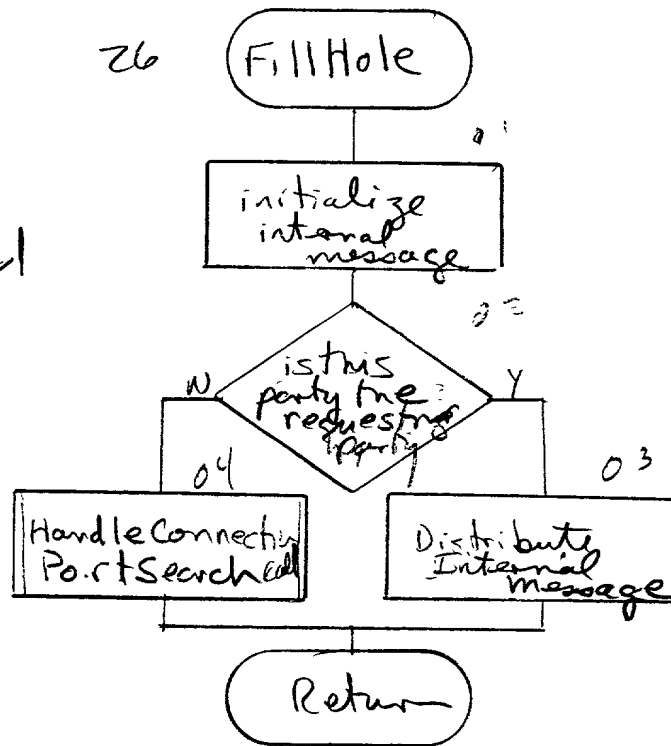 26
Fill Hole
initialize
internal
message
is this
party the
requesting
party
N
Y
04
03
Handle Connection
Port Search call
Distribute
Internal
Message
Return